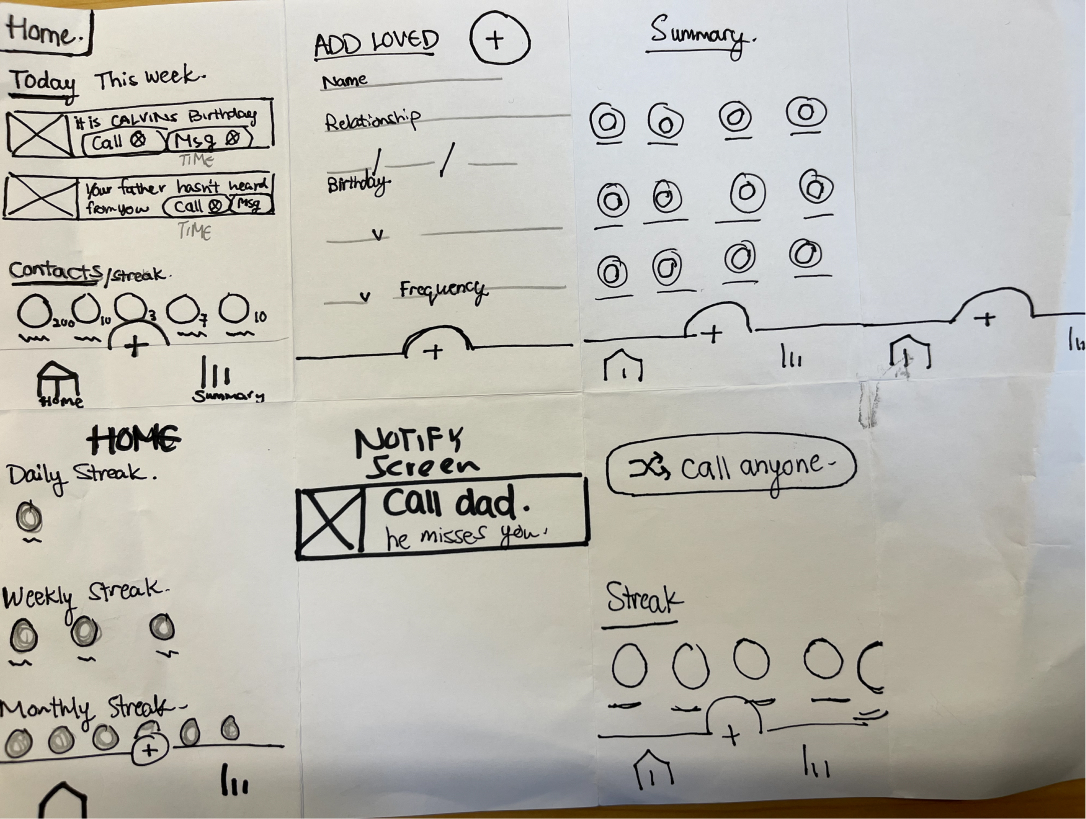 Home.
Today This week.
it is CALVINS Birthday
Call ⊗ Msg ⊗
TIME
Your father hasn't heard
from you Call ⊗ Msg
TIME
Contacts/streak.
200 10 3 7 10
+
Home Summary
ADD LOVED +
Name
Relationship
/ /
Birthday
v
v Frequency
+
Summary.
+
+
HOME
Daily Streak.
Weekly Streak.
Monthly Streak-
+
NOTIFY
Screen
Call dad.
he misses you.
call anyone-
Streak
+